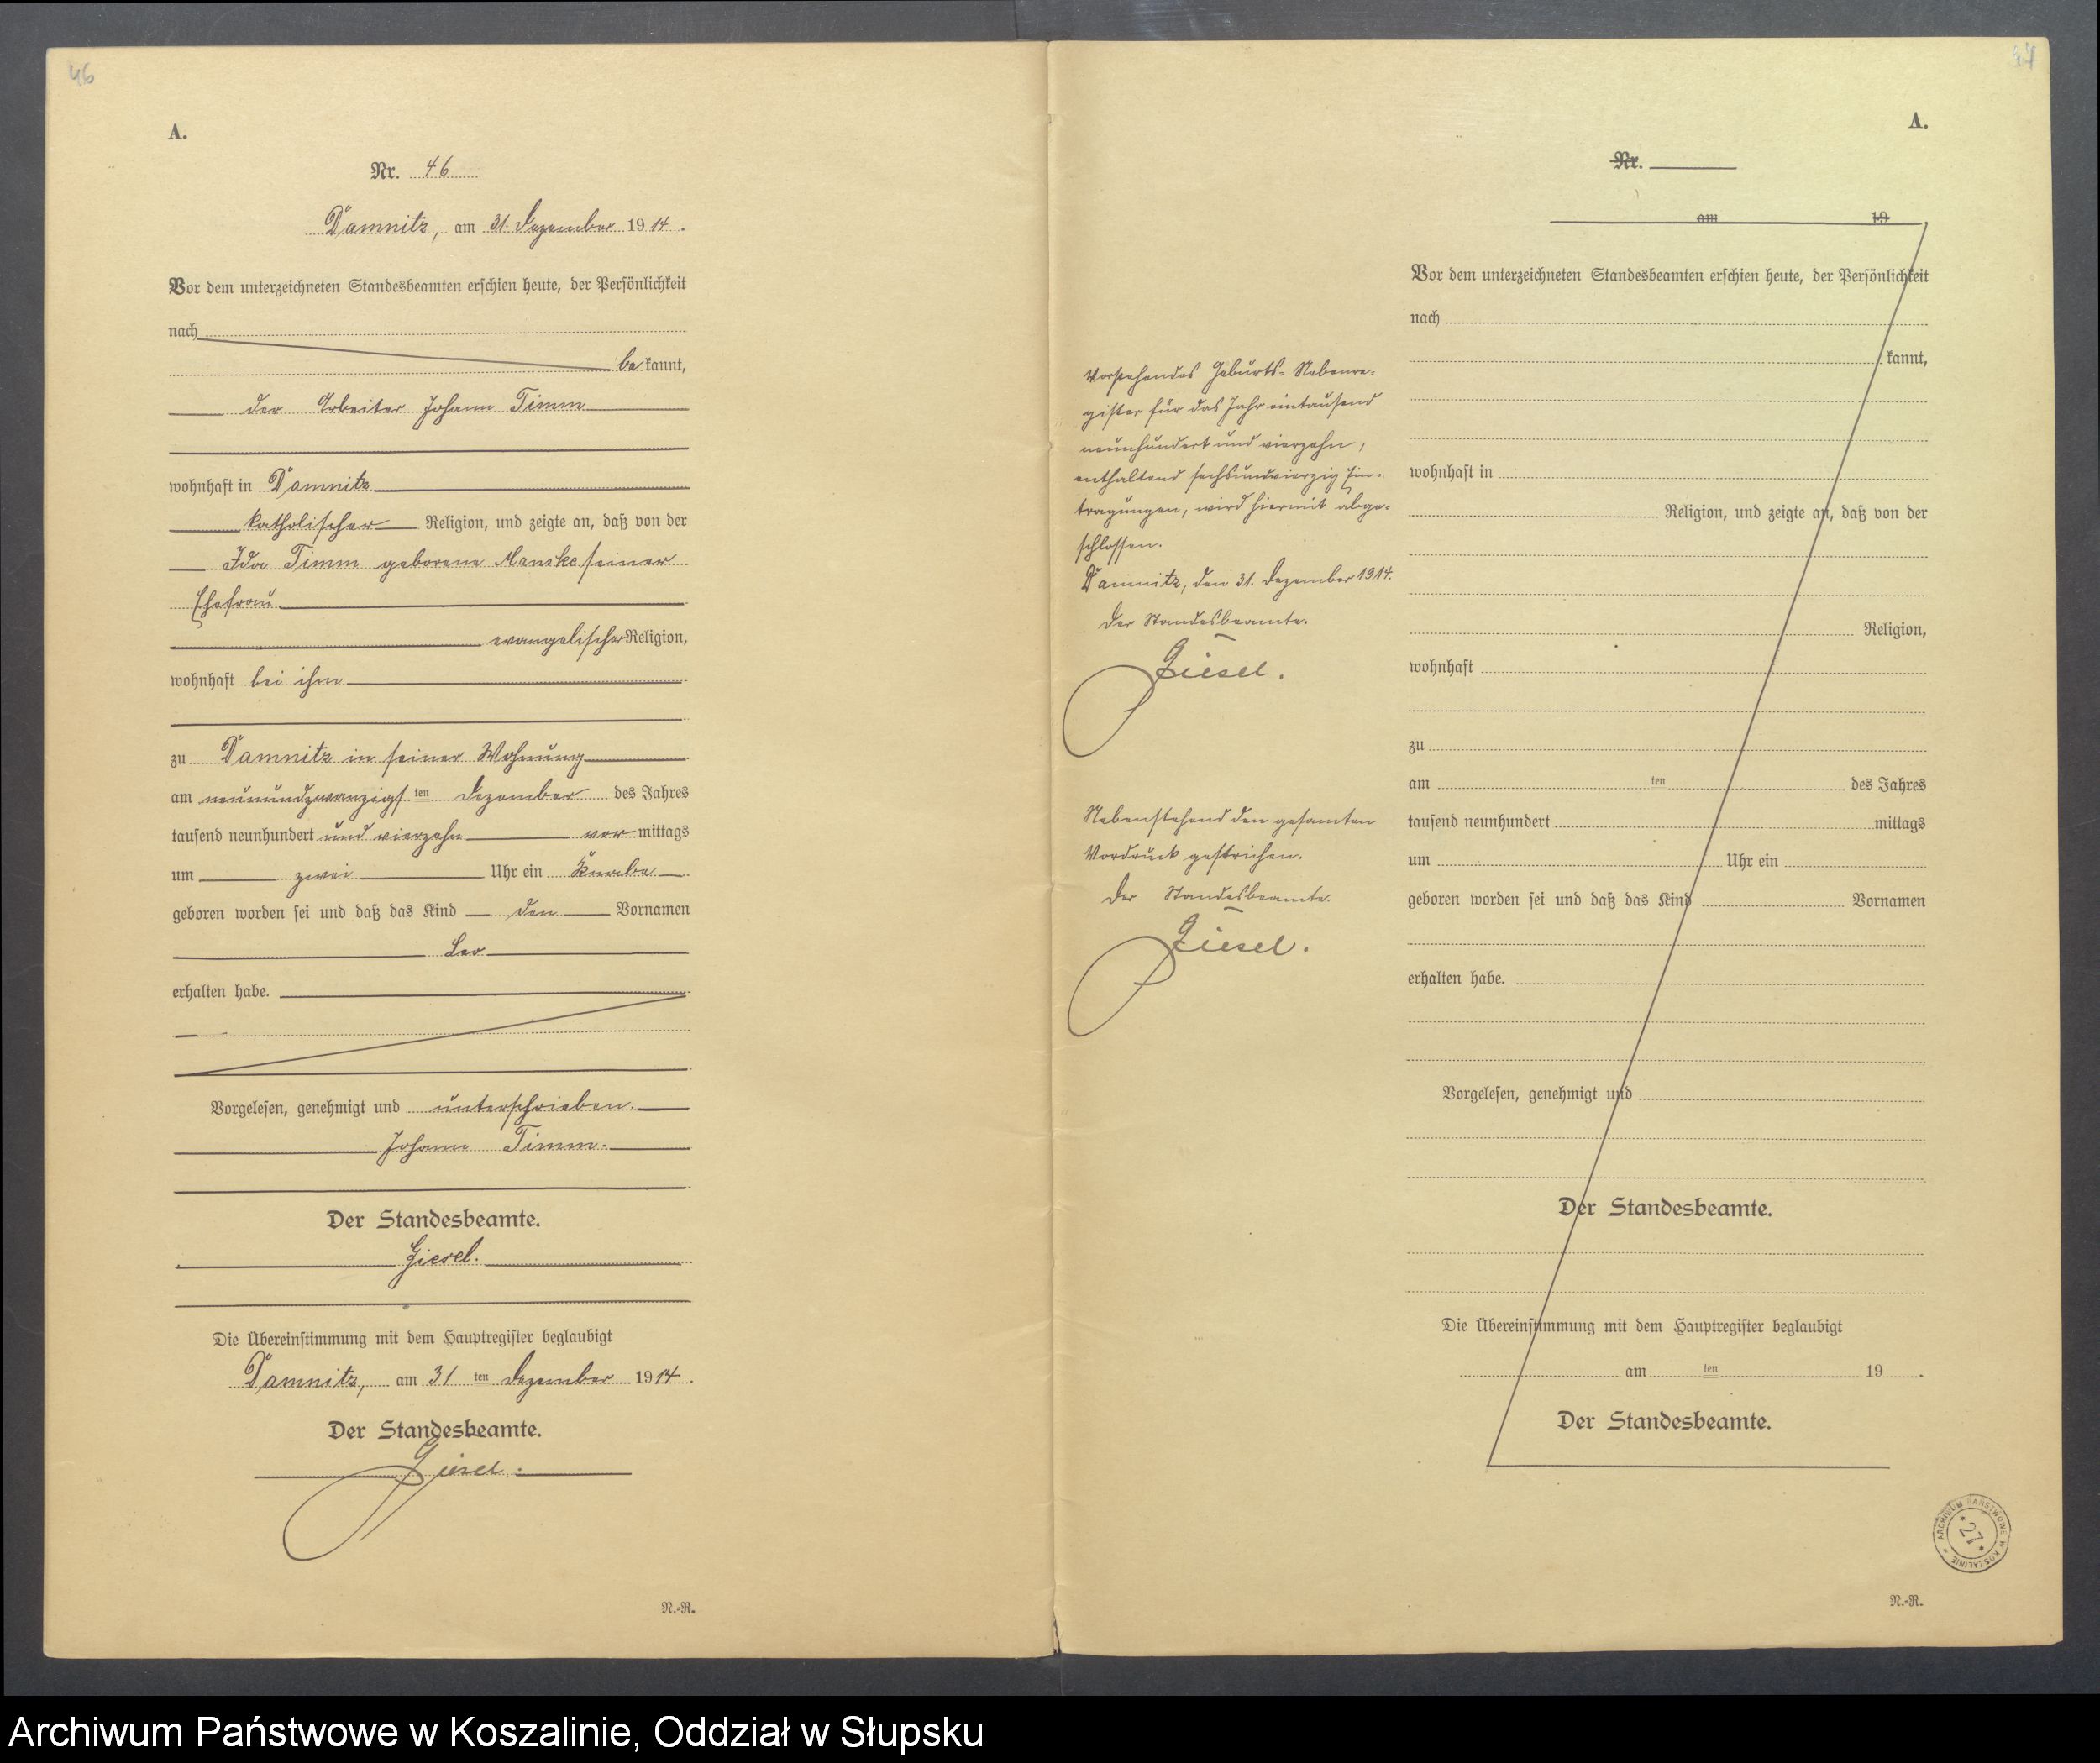 46
A.
Nr. 46
Damnitz, am 31. Dezember 1914.
Vor dem unterzeichneten Standesbeamten erschien heute, der Persönlichkeit
nach
be kannt,
der Arbeiter Johann Timm
wohnhaft in Damnitz
katholischer Religion, und zeigte an, daß von der
Ida Timm geborene Manske seiner
Ehefrau
evangelischer Religion,
wohnhaft bei ihm
zu Damnitz in seiner Wohnung
am neunundzwanzigsten Dezember des Jahres
tausend neunhundert und vierzehn vormittags
um zwei Uhr ein Knabe
geboren worden sei und daß das Kind den Vornamen
Leo
erhalten habe.
Vorgelesen, genehmigt und unterschrieben.
Johann Timm.
Der Standesbeamte.
Giesel.
Die Übereinstimmung mit dem Hauptregister beglaubigt
Damnitz, am 31 ten Dezember 1914.
Der Standesbeamte.
Giesel.
N.-R.
Vorstehendes Geburts-Nebenre-
gister für das Jahr eintausend
neunhundert und vierzehn,
enthaltend sechsundvierzig Ein-
tragungen, wird hiermit abge-
schlossen.
Damnitz, den 31. Dezember 1914.
Der Standesbeamte.
Giesel.
Nebenstehend den gesamten
Vordruck gestrichen.
Der Standesbeamte.
Giesel.
47
A.
Nr.
am 19
Vor dem unterzeichneten Standesbeamten erschien heute, der Persönlichkeit
nach
kannt,
wohnhaft in
Religion, und zeigte an, daß von der
Religion,
wohnhaft
zu
am ten des Jahres
tausend neunhundert mittags
um Uhr ein
geboren worden sei und daß das Kind Vornamen
erhalten habe.
Vorgelesen, genehmigt und
Der Standesbeamte.
Die Übereinstimmung mit dem Hauptregister beglaubigt
am ten 19 .
Der Standesbeamte.
ARCHIWUM PAŃSTWOWE W KOSZALINIE
* 27 *
N.-R.
Archiwum Państwowe w Koszalinie, Oddział w Słupsku